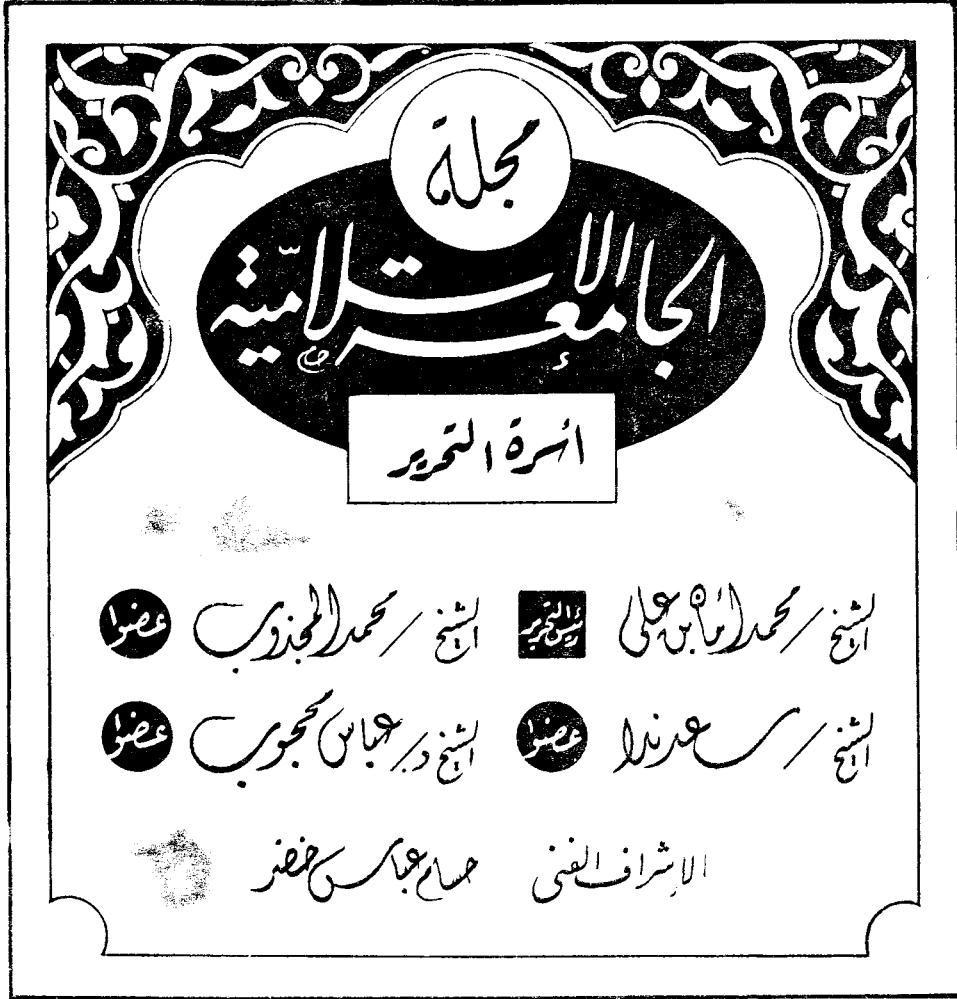 مجلة
الجامعة الإسلامية
أسرة التحرير
الشيخ / محمد أمان بن علي رئيس التحرير
الشيخ / محمد المجذوب عضوا
الشيخ / سعد ندا عضوا
الشيخ د / عباس محجوب عضوا
الإشراف الفنى حسام عباس خضر